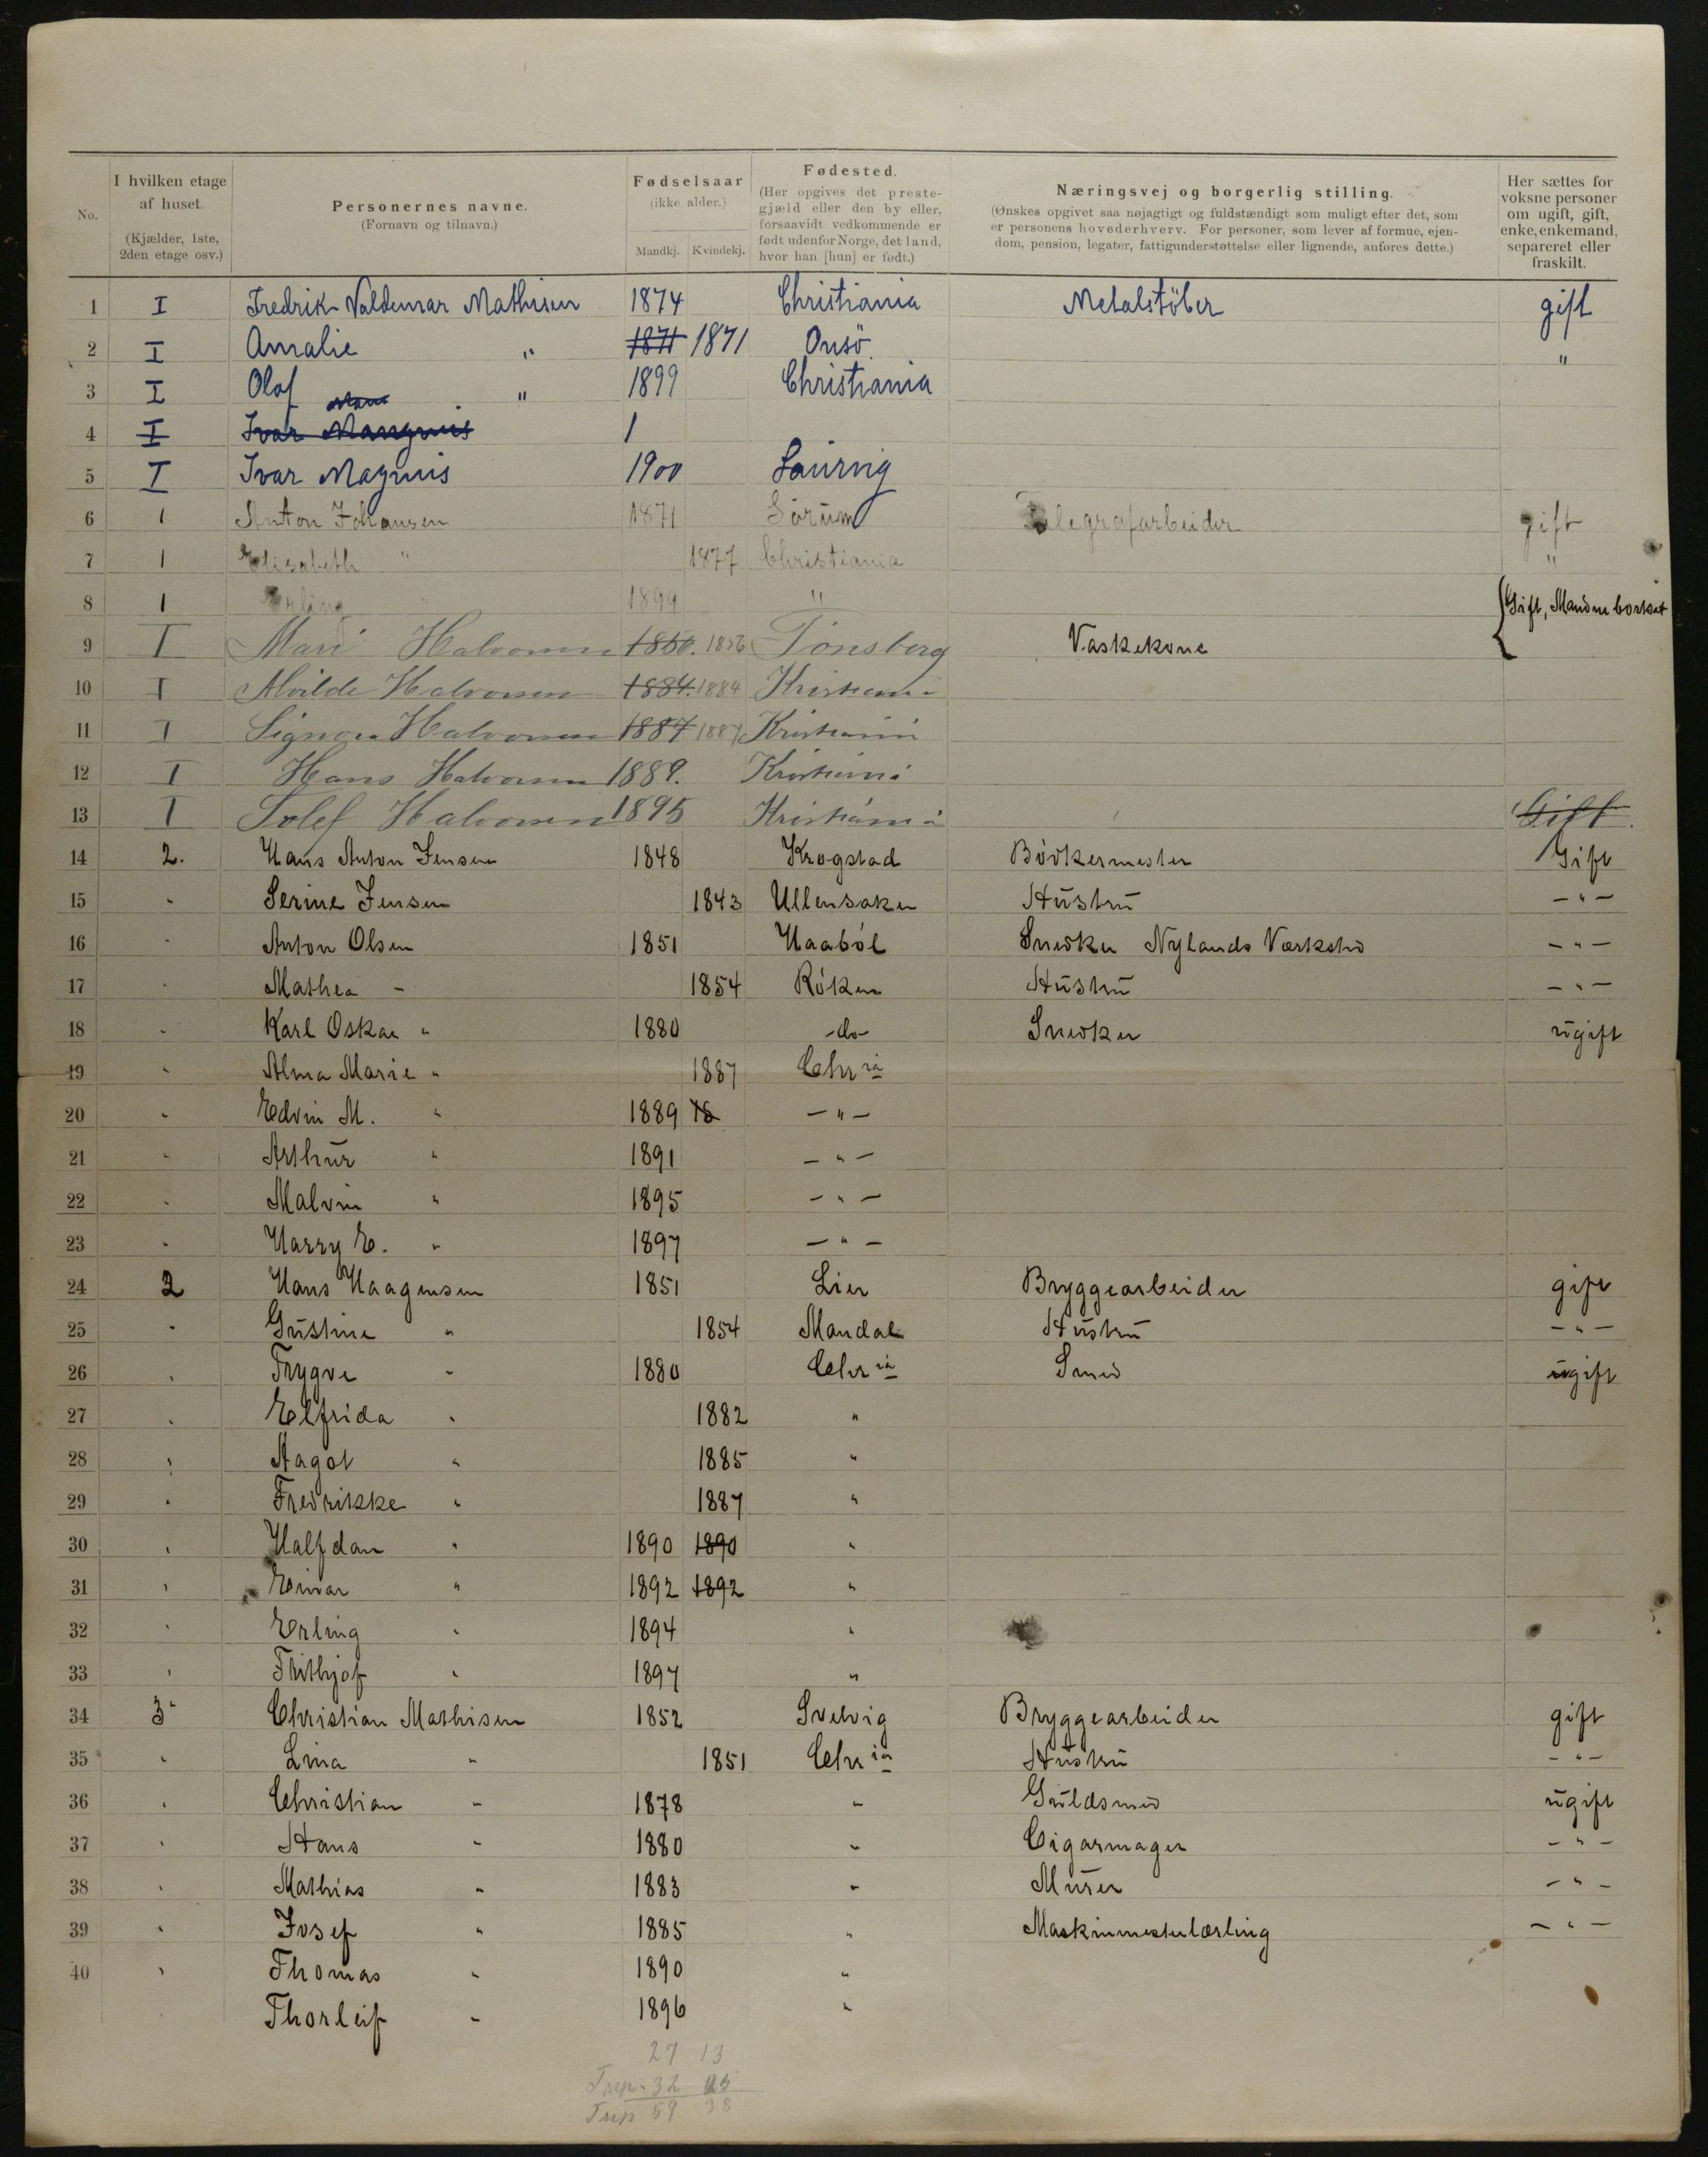 No.
I hvilken etage af huset. (Kjælder, 1ste, 2den etage osv.)
Personernes navne. (Fornavn og tilnavn.)
Fødselsaar (ikke alder.) Mandkj. Kvindekj.
Fødested. (Her opgives det prestegjæld eller den by eller, forsaavidt vedkommende er født udenfor Norge, det land, hvor han [hun] er født.)
Næringsvej og borgerlig stilling. (Ønskes opgivet saa nøjagtigt og fuldstændigt som muligt efter det, som er personens hovederhverv. For personer, som lever af formue, ejendom, pension, legater, fattigunderstøttelse eller lignende, anføres dette.)
Her sættes for voksne personer om ugift, gift, enke, enkemand, separeret eller fraskilt.
1 I Fredrik Valdemar Mathisen 1874 Christiania Metalstöber gift
2 I Amalie " 1871 1871 Onsö "
3 I Olof " 1899 Christiania
4 I Ivar Mangnus 1
5 I Ivar Magnus 1900 Laurvig
6 1 Anton Johansen 1871 Sörum Telegrafarbeider gift
7 1 Elisabeth " 1877 Christiania "
8 1 Erling " 1899 "
9 I Mari Halvorsen 1856. 1856 Tönsberg Vaskekone {Gift, Manden bortsat
10 I Alvilde Halvorsen 1884. 1884 Kristiania
11 I Signora Halvorsen 1887 1887 Kristiania
12 I Hans Halvorsen 1889. Kristiania
13 I Tolef Halvorsen 1895 Kristiania Gift
14 2. Hans Anton Jensen 1848 Krogstad Bödkermester Gift
15 " Serine Jensen 1843 Ullensaker Hustru — " —
16 " Anton Olsen 1851 Haaböl Snedker Nylands Værksted — " —
17 " Mathea " 1854 Röken Hustru — " —
18 " Karl Oskar " 1880 -do- Snedker ugift
19 " Alma Marie " 1887 Chr ia
20 " Edvin M. " 1889 18 — " —
21 " Arthur " 1891 — " —
22 " Malvin " 1895 — " —
23 " Harry E. " 1897 — " —
24 2 Hans Haagensen 1851 Lier Bryggearbeider gift
25 " Gustine " 1854 Mandal Hustru — " —
26 " Trygve " 1880 Chr ia Smed ugift
27 " Elfrida " 1882 "
28 " Aagot " 1885 "
29 " Fredrikke " 1887 "
30 " Halfdan " 1890 1890 "
31 " Einar " 1892 1892 "
32 " Erling " 1894 "
33 " Frithjof " 1897 "
34 3 Christian Mathisen 1852 Svelvig Bryggearbeider gift
35 " Lina " 1851 Chr ia Hustru — " —
36 " Christian " 1878 " Guldsmed ugift
37 " Hans " 1880 " Cigarmager — " —
38 " Mathias " 1883 " Murer — " —
39 " Josef " 1885 " Maskinmesterlærling — " —
40 " Thomas " 1890 "
Thorleif " 1896 "
27 13
32 25
59 38